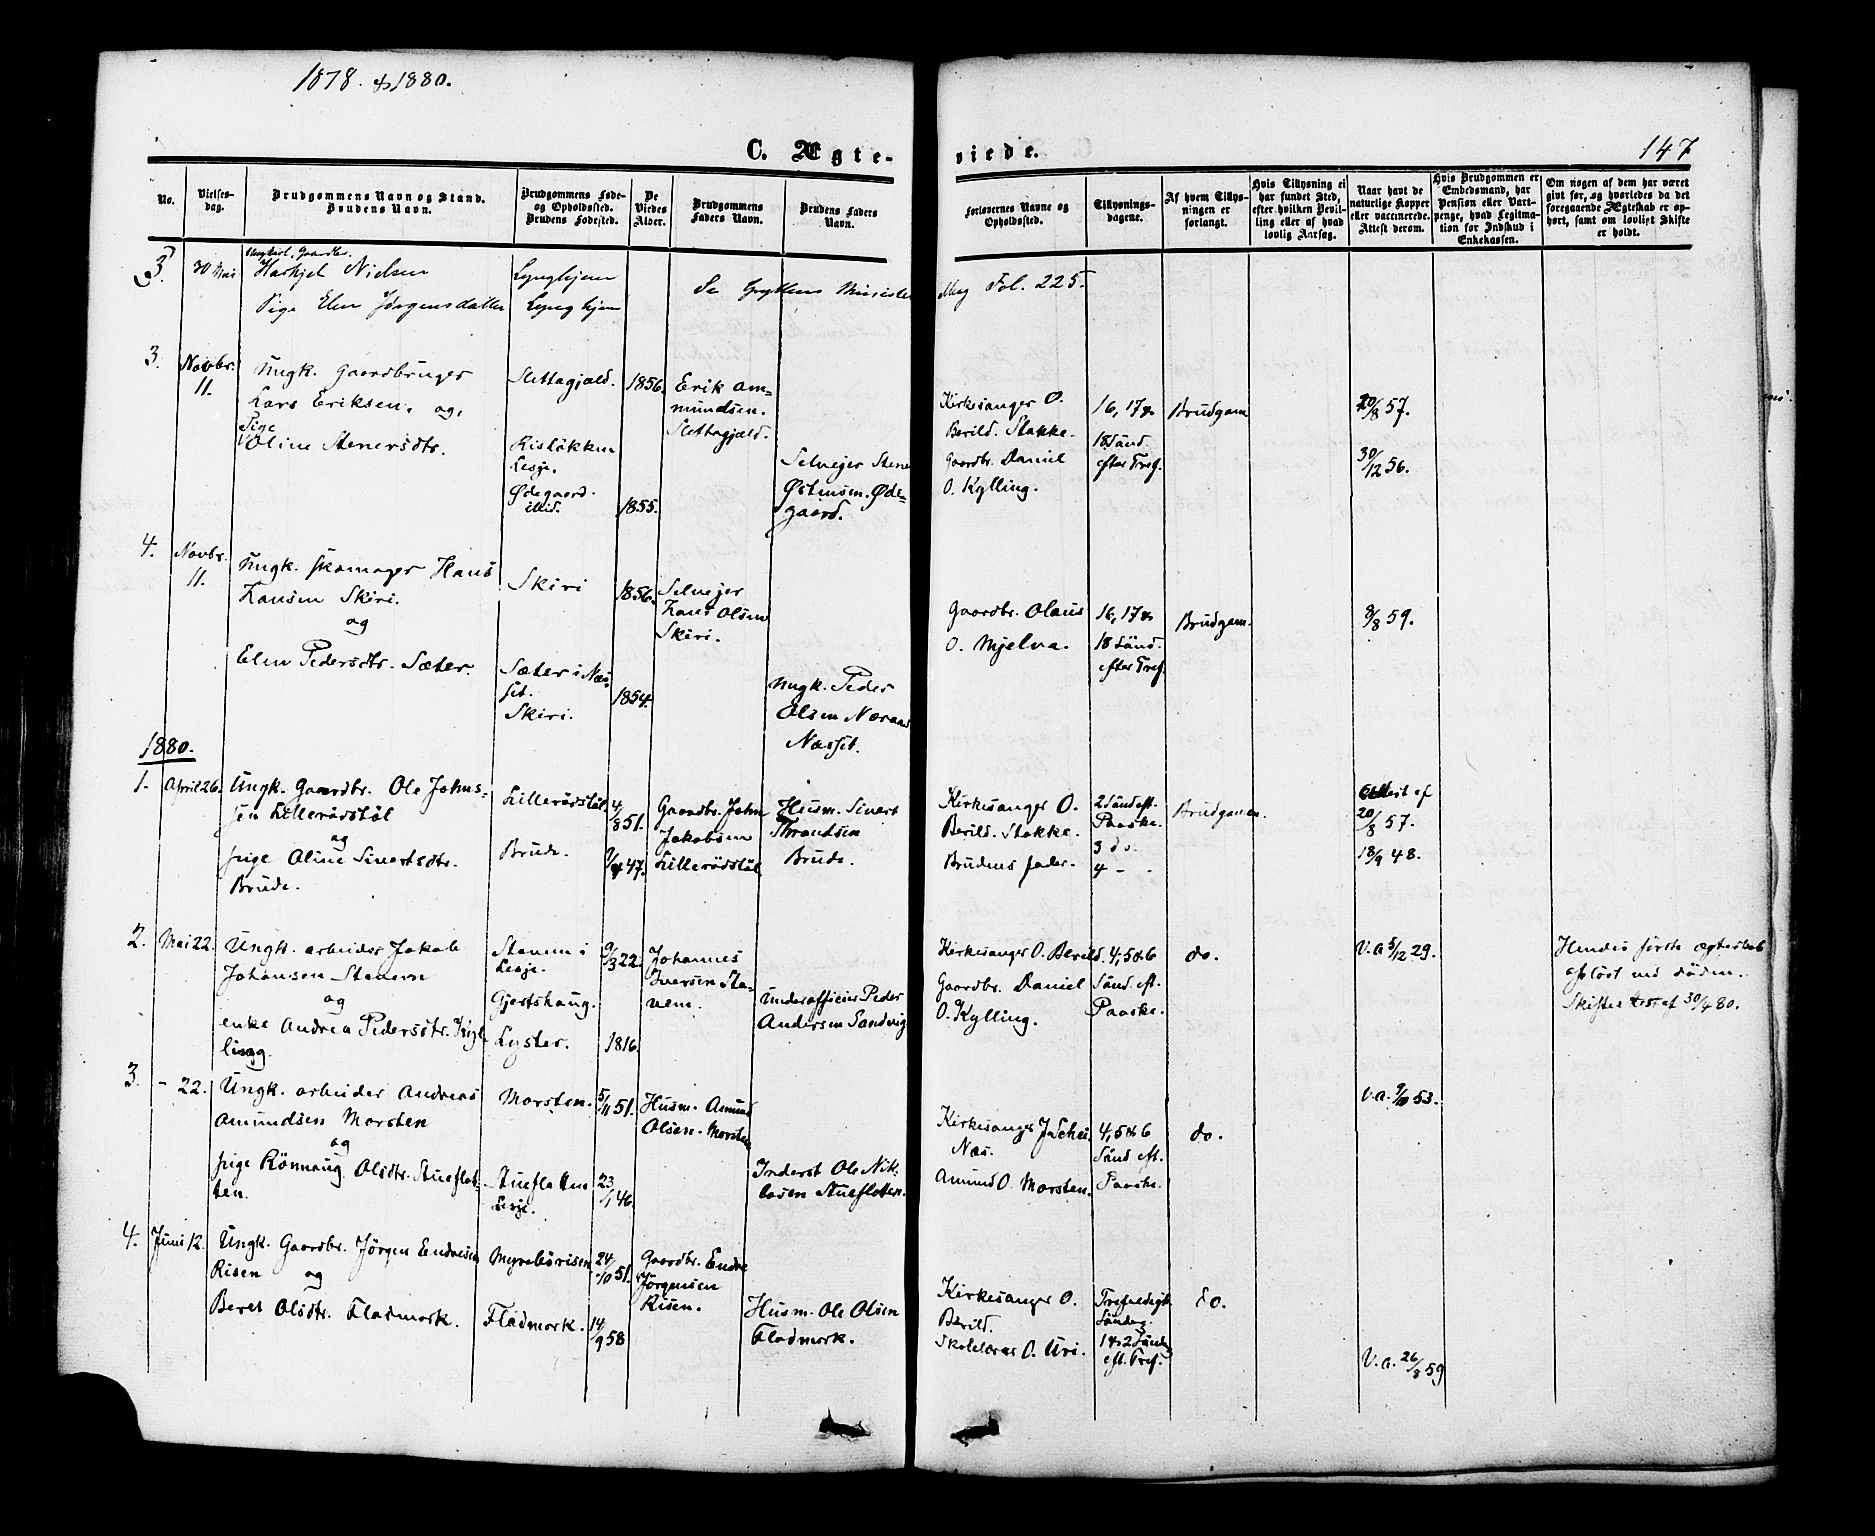 1878. & 1880.
C. Ægte-
viede.
147
No.
Vielses-
dag.
Brudgommens Navn og Stand.
Brudens Navn.
Brudgommens Føde-
og Opholdssted.
Brudens Fødested.
De
Viedes
Alder.
Brudgommens
Faders Navn.
Brudens Faders
Navn.
Forlovernes Navne og
Opholdssted.
Tillysnings-
dagene.
Af hvem Tillys-
ningen er
forlangt.
Hvis Tillysning ei
har fundet Sted,
efter hvilken Bevil-
ling eller af hvad
lovlig Aarsag.
Naar havt de
naturlige Kopper
eller vaccinerede.
Attest derom.
Hvis Brudgommen er
Embedsmand, har
Pension eller Vart-
penge, hvad Legitima-
tion for Indskud i
Enkekassen.
Om nogen af dem har været
givt før, og hvorledes da det
foregaaende Ægteskab er op-
hørt, samt om lovligt Skifte
er holdt.
3.
30 Mai
Ungkarl, Gaardbr.
Nielsen
Pige Elen Jørgensdatter
Lynghjem
Lynghjem
Se Gryttens Ministe
Fol. 225.
3.
Novbr.
11.
Ungk. Gaardbruger
Lars Eriksen, og,
Pige
Oline Stenersdtr.
Slettagjæld.
Ristökken
Lesje.
Ødegaard.
ibid.
1856.
1855.
Erik Am-
mundsen.
Slettagjæld.
Selvejer Stene
Østensen. Øde-
gaard.
Kirkesanger O.
Berild. Stokke.
Gaardbr. Daniel
O. Kylling.
16, 17 &
18 Sünd.
efter Tref.
Brudgom
20/8 57.
30/12 56.
4.
Novbr.
11.
Ungk. skomager Hans
Hansen Skiri.
og
Elen Pedersdtr. Sæter.
Skiri
Sæter i Næs-
set.
Skiri.
1856.
1854.
Selvejer
Hans Olsen
Skiri.
Ungk. Peder
Olsen Noraas
Næsset.
Gaardbr. Olaus
O. Mjelva.
16, 17 &
18 Sünd.
efter Tref.
Brudgom.
8/8 59.
1880.
1.
April 26.
Ungk. Gaardbr. Ole Johns-
sen Lillerödstöl
og
pige Oline Sivertsdtr.
Brude.
Lillerödstöl
Brude.
4/8 51.
47.
Gaardbr. John
Jakobsen
Lillerödstöl
Husm. Sivert
Thrandsen
Brude.
Kirkesanger O.
Berild. Stokke.
Brudens fader.
2 Sünd eft.
Paaske.
3 do.
4 - -
Brudgommen.
Attest af
20/8 57.
18/9 48.
2.
Mai 22.
Ungk. arbeider Jakob
Johansen Stavem
og
enke Andrea Pedersdtr. Kyl-
ling.
Stavem i
Lesje.
Gjertshaug.
Lyster.
9/3 22.
1816.
Johannes
Iversen Sta-
vem.
Underofficier Peder
Andersen Sandvig
Kirkesanger O. Berild.
Gaardbr. Daniel
O. Kylling.
4, 5 & 6
Sünd. eft.
Paaske.
do.
V. a 5/12 29.
Hendes første ægteskab
oplöst ved döden.
Skifteattest af 30/4 80.
3.
- 22.
Ungk. arbeider Andreas
Amundsen Marsten
og
pige Rönnaug Olsdtr. Stueflot-
ten.
Marsten.
Stueflotten
Lesje.
5/11 51.
23/1 46.
Husm. Amund
Olsen. Marsten
Inderst Ole Nik-
lasen Stueflotten.
Kirkesanger J. Schei.
Næs.
Amund O. Marsten.
4, 5 & 6
Sünd eft.
Paaske.
do.
V. a. 9/10 53.
4.
Juni 12.
Ungk. Gaardbr. Jörgen Endresen
Risen og
Beret Olsdtr. Fladmark.
Myrebörisen
Fladmark.
24/10 51.
14/9 58
Gaardbr. Endre
Jörgensen
Risen.
Husm. Ole Olsen
Fladmark.
Kirkesanger O.
Berild.
Skolelærer O. Uri.
Trefoldigh.
Söndag.
1 & 2 Sünd
eft. Tref.
do.
V. a. 26/8 59